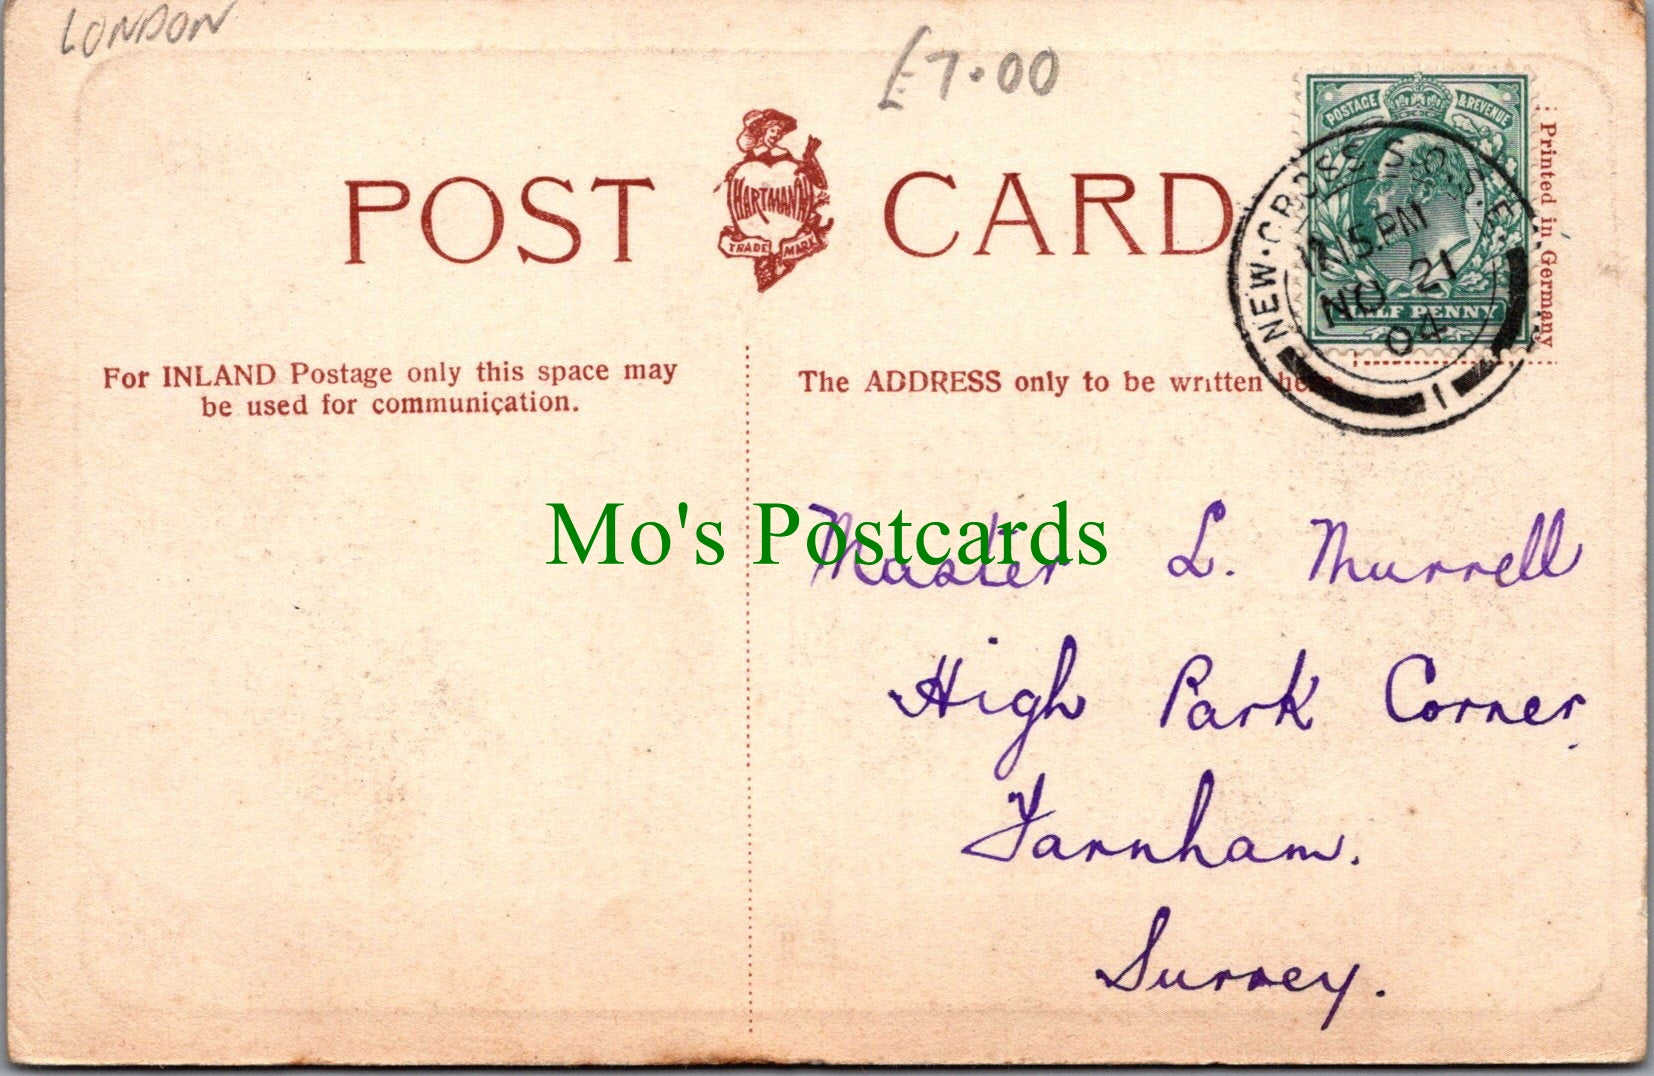 LONDON
£7.00
POST CARD
HARTMANN
TRADE MARK
POSTAGE & REVENUE
HALF PENNY
Printed in Germany
NEW·CROSS S.O. S.E.
15.PM
NO 21
04
1
For INLAND Postage only this space may
be used for communication.
The ADDRESS only to be written here.
Mo's Postcards
Master L. Murrell
High Park Corner
Farnham.
Surrey.